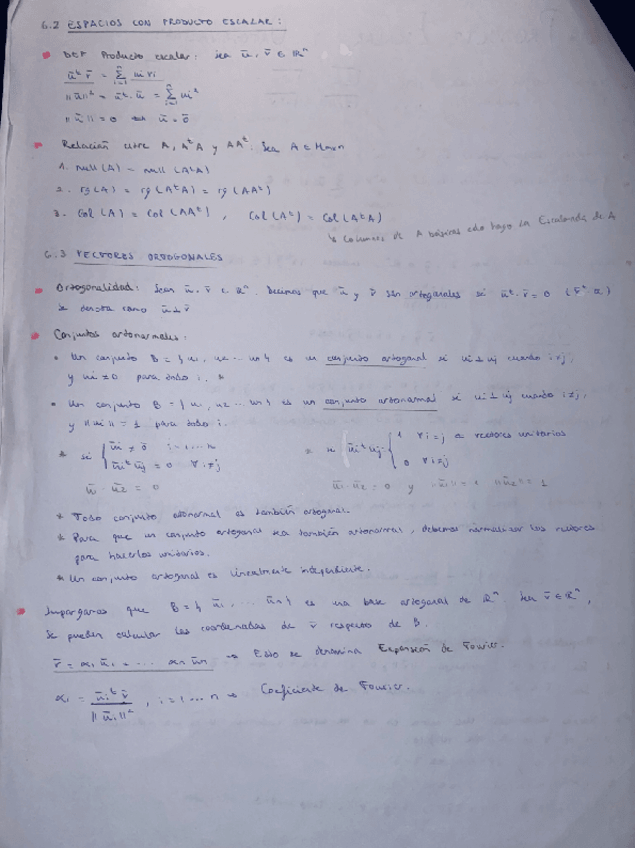 6.2 ESPACIOS CON PRODUCTO ESCALAR:
DEF Producto escalar: Sea ū, v̄ ∈ ℝⁿ
ūᵗ v̄ = Σⁿᵢ₌₁ ui vi
||ū||² = ūᵗ · ū = Σⁿᵢ₌₁ ui²
||ū|| = 0 ⇔ ū = ō
Relación entre A, AᵗA y AAᵗ: Sea A ∈ Mmxn
1. null (A) = null (AᵗA)
2. rg (A) = rg (AᵗA) = rg (AAᵗ)
3. Col (A) = Col (AAᵗ), Col (Aᵗ) = Col (AᵗA)
↳ Columnas de A básicas en Escalonada de A
6.3 VECTORES ORTOGONALES
Ortogonalidad: Sean ū, v̄ ∈ ℝⁿ. Decimos que ū y v̄ son ortogonales si ūᵗ · v̄ = 0 (v̄ᵗ ū)
Se denota como ū ⊥ v̄
Conjuntos ortonormales:
• Un conjunto B = { u1, u2 ... un } es un conjunto ortogonal si ui ⊥ uj cuando i ≠ j,
y ui ≠ 0 para todo i. *
• Un conjunto B = { u1, u2 ... un } es un conjunto ortonormal si ui ⊥ uj cuando i ≠ j,
y || ui || = 1 para todo i.
* si { ūi ≠ ō i = 1 ... n * si ūiᵗ ūj = { 1 ∀ i = j vectores unitarios
ūiᵗ ūj = 0 ∀ i ≠ j 0 ∀ i ≠ j
ū1 · ū2 = 0 ū1 · ū2 = 0 y ||ū1|| = 1 ||ū2|| = 1
* Todo conjunto ortonormal es también ortogonal.
* Para que un conjunto ortogonal sea también ortonormal, debemos normalizar los vectores
para hacerlos unitarios.
* Un conjunto ortogonal es linealmente independiente.
Supongamos que B = { ū1, ... ūn } es una base ortogonal de ℝⁿ. Sea v̄ ∈ ℝⁿ,
Se pueden calcular las coordenadas de v̄ respecto de B.
v̄ = α1 ū1 = ... αn ūn → Esto se denomina Expansión de Fourier.
αi = ūiᵗ v̄ / || ūi ||², i = 1 ... n → Coeficiente de Fourier.